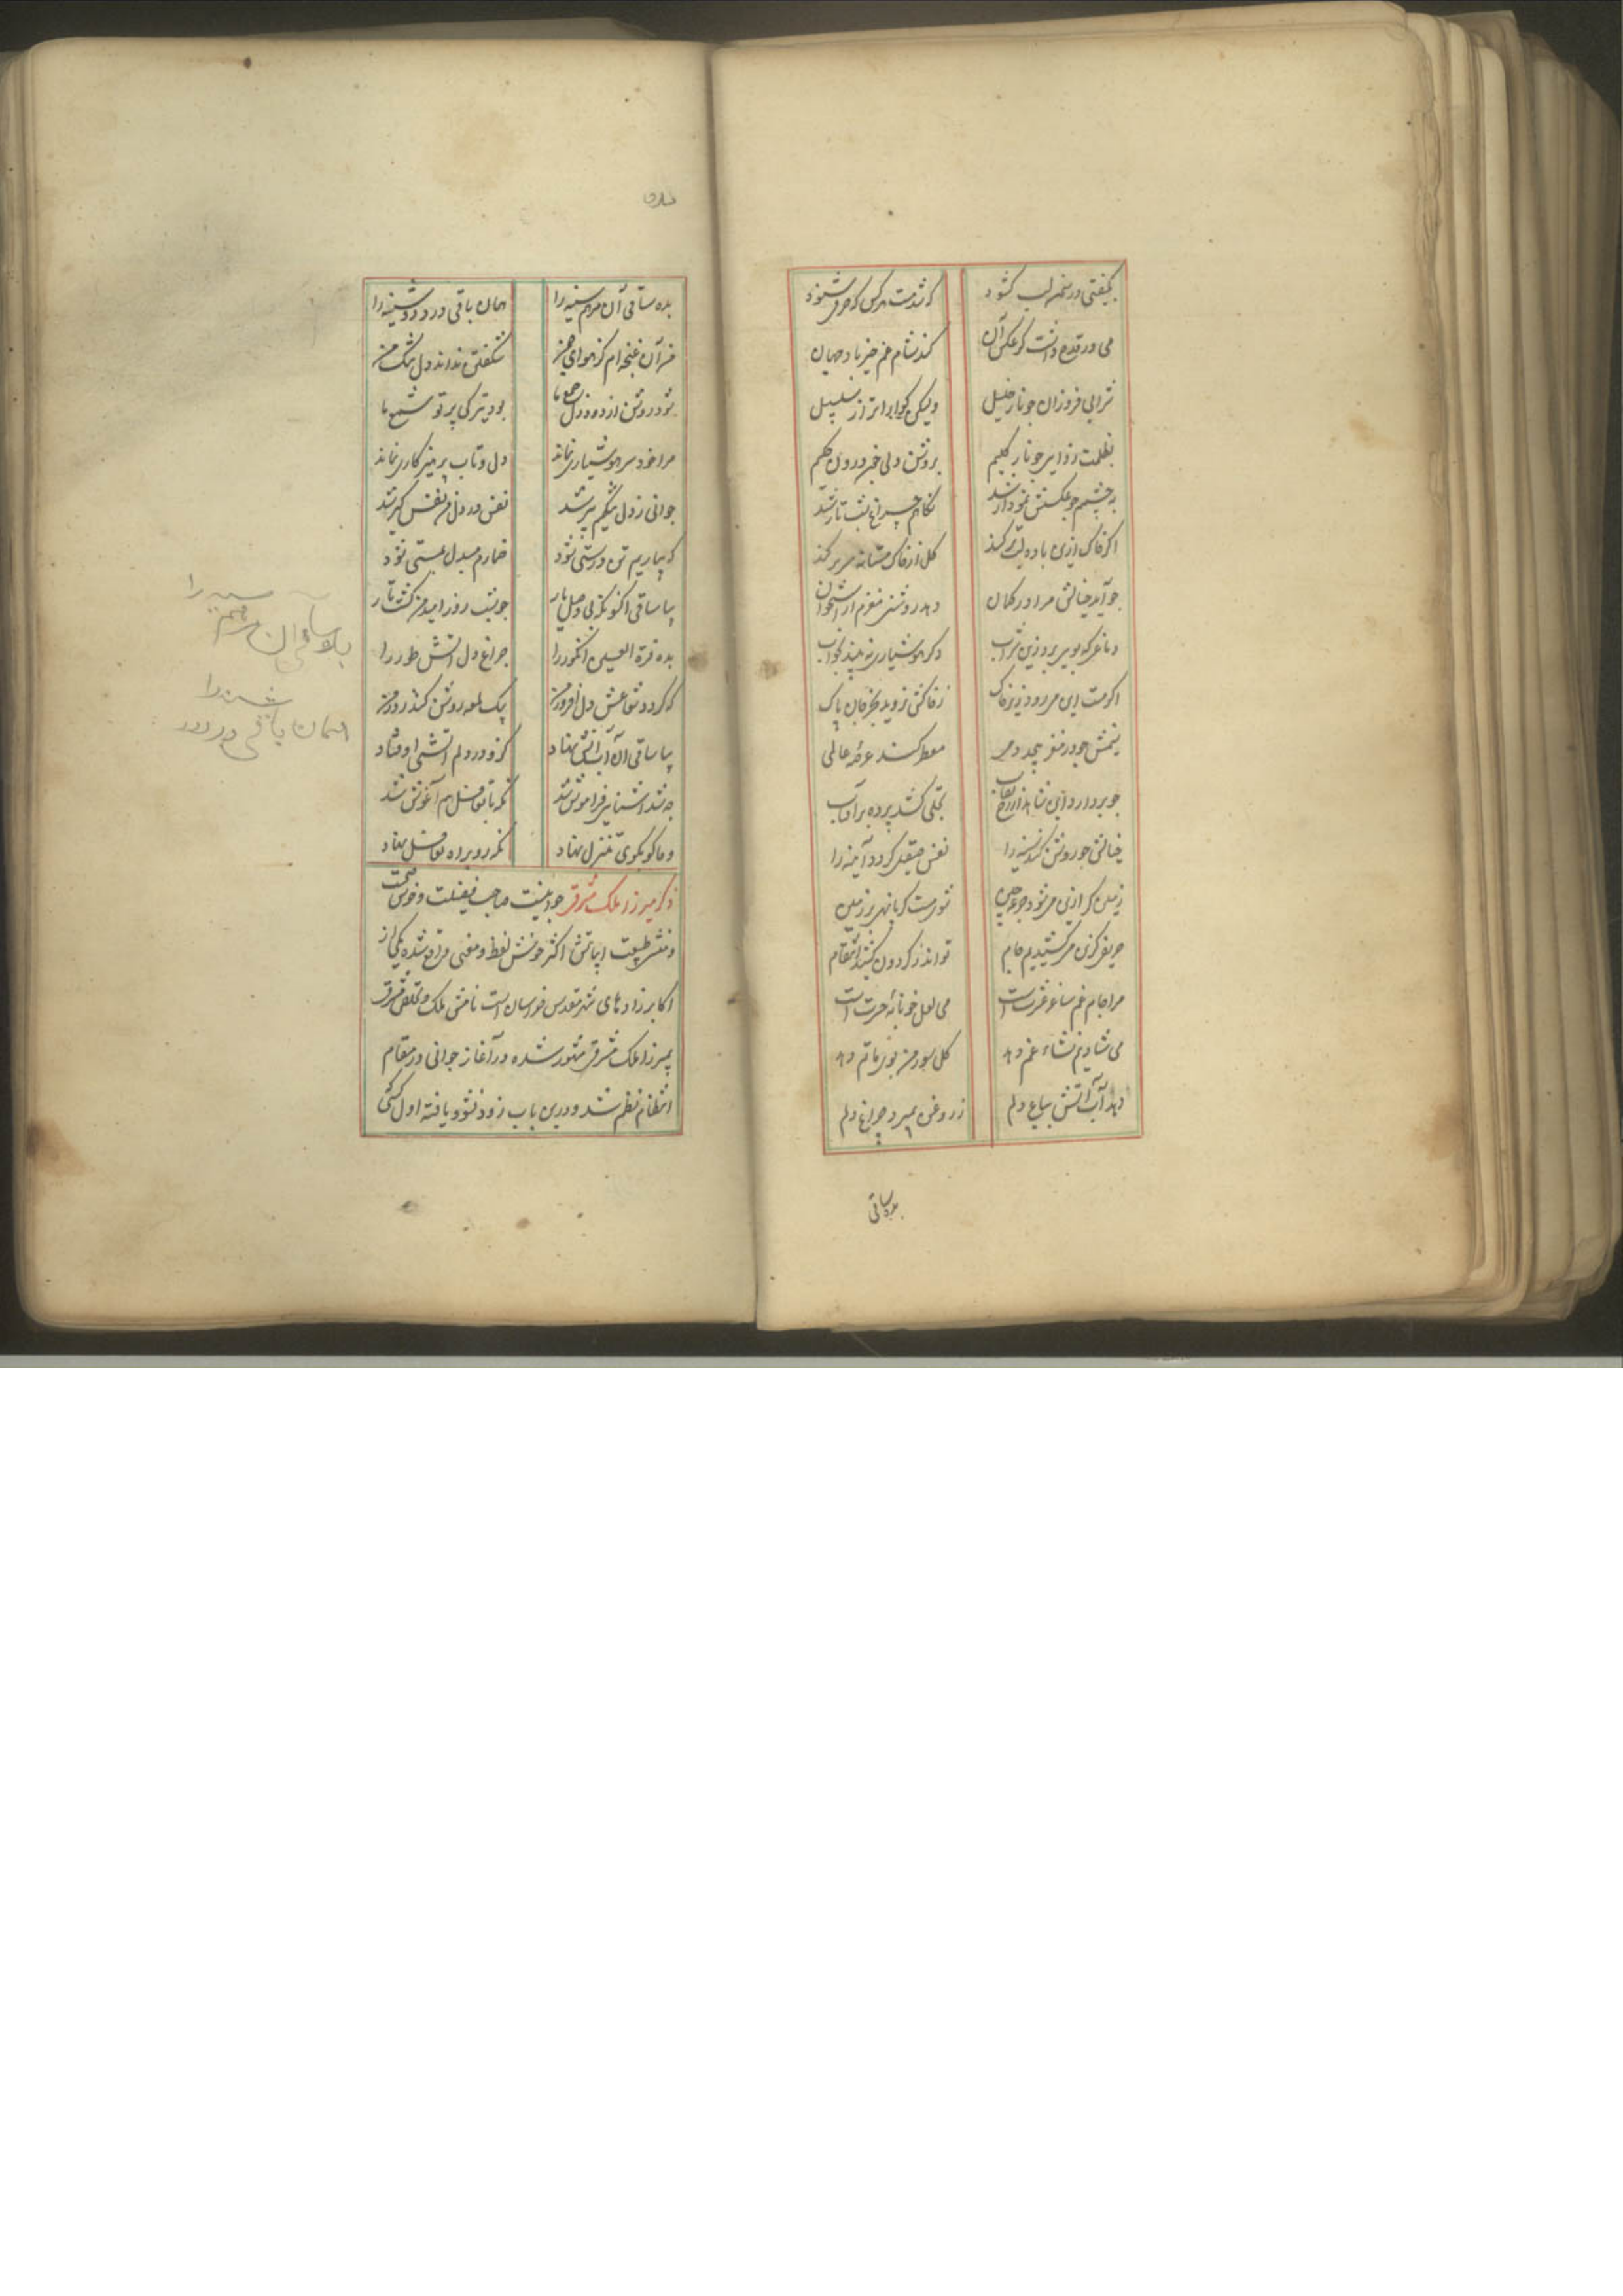 بکیفیتی در سخن لب کشود که شد مست هرکس که حرفی شنود
می در قدح داشت کز عکس آن کند شام غم خیر باد جهان
شرابی فروزان چو نار خلیل ولیکن گوارا تر از سلسبیل
بظلمت زدایی چو نار کلیم بروشن دلی چون درون حکیم
به چشمم چو عکسش نمودار شد نگاهم چراغ شب تار شد
اگر خاک ازین باده لب تر کند گل از خاک مستانه سر بر کند
چو آید خیالش مرا در گمان دهد روشنی مغزم از استخوان
دماغی که بویی برد زین شراب دگر هوشیاری نه بیند بخواب
اگر مست این می رود زیر خاک ز خاکش نروید بجز جان پاک
شمیمش چو در مغز پیچد دمی معطر کند عرصه عالمی
چو بردارد این شاهد از رخ نقاب تجلی کشد پرده بر آفتاب
خیالش چو روشن کند سینه را نفس صیقلی گردد آیینه را
زمین گر ازین می شود جرعه چین شود مست گر پا نهی بر زمین
حریفی کزین می کشیدیم جام تواند ز گردون کشید انتقام
مرا جام غم ساغر عشرت است می لعل خونابه حسرت است
می شادیم نشاء غم دهد گل سور من بوی ماتم دهد
دهد آب آتش بباغ دلم ز روغن بمیرد چراغ دلم
بده ساقی
بده ساقی آن مرهم سینه را همان باقی درد دوشینه را
من آن غنچه ام کز هوای چمن شگفتن نداند دل تنگ من
شود روشن از دود دل جمع ما بود تیرگی پرتو شمع ما
مرا خود سر هوشیاری نماند دل و تاب پرهیزگاری نماند
جوانی ز دل تنگیم پیر شد نفس در دل من نفس گیر شد
که بیماریم تن درستی شود خمارم مبدل بمستی شود
بیا ساقی اکنون که بی وصل یار چو شب روز امید من گشت تار
بده قرة العین انگور را چراغ دل آتش طور را
که گردد شعاعش دل افروز من بیک لمعه روشن کند روز من
بیا ساقی آن آب آتش نهاد کزو در دلم آتشی اوفتاد
چه شد آشنایی فراموش شد که با تغافل هم آغوش شد
وفا کو بکوی تنزل نهاد نگه رو براه تغافل نهاد
ذکر میرزا ملک مشرقی جوانیست صاحب فضیلت و خوش صحبت
و منشی طبیعت ابیاتش اکثر خوش لفظ و معنی واقع شده یکی از
اکابرزادهای شهر مقدس خراسان است نامش ملک و تخلصش مشرقی
بمیرزا ملک مشرقی مشهور شده در آغاز جوانی در مقام
انتظام نظم شد و درین باب زود نشو یافته اول کسی
بده ساقی آن مرهم سینه را
همان باقی درد دوشینه را